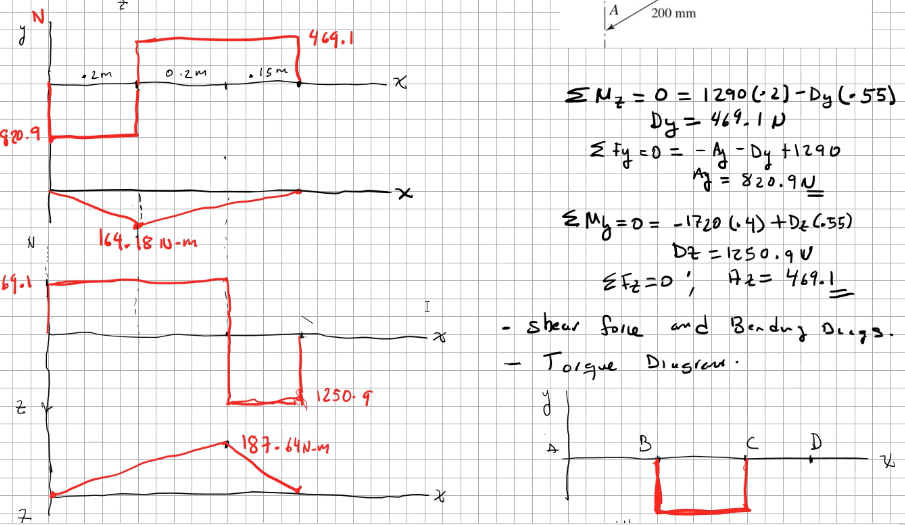 z
N
y
469.1
.2m 0.2m .15m
x
820.9
x
164.18 N-m
N
69.1
I
x
1250.9
z
187.64 N-m
x
z
A
200 mm
ΣMz = 0 = 1290(.2) - Dy(.55)
Dy = 469.1 N
ΣFy = 0 = - Ay - Dy + 1290
Ay = 820.9 N
ΣMy = 0 = -1720(.4) + Dz(.55)
Dz = 1250.9 N
ΣFz = 0 ; Az = 469.1
- Shear force and Bending Diags.
- Torque Diagram.
y
A B C D
x